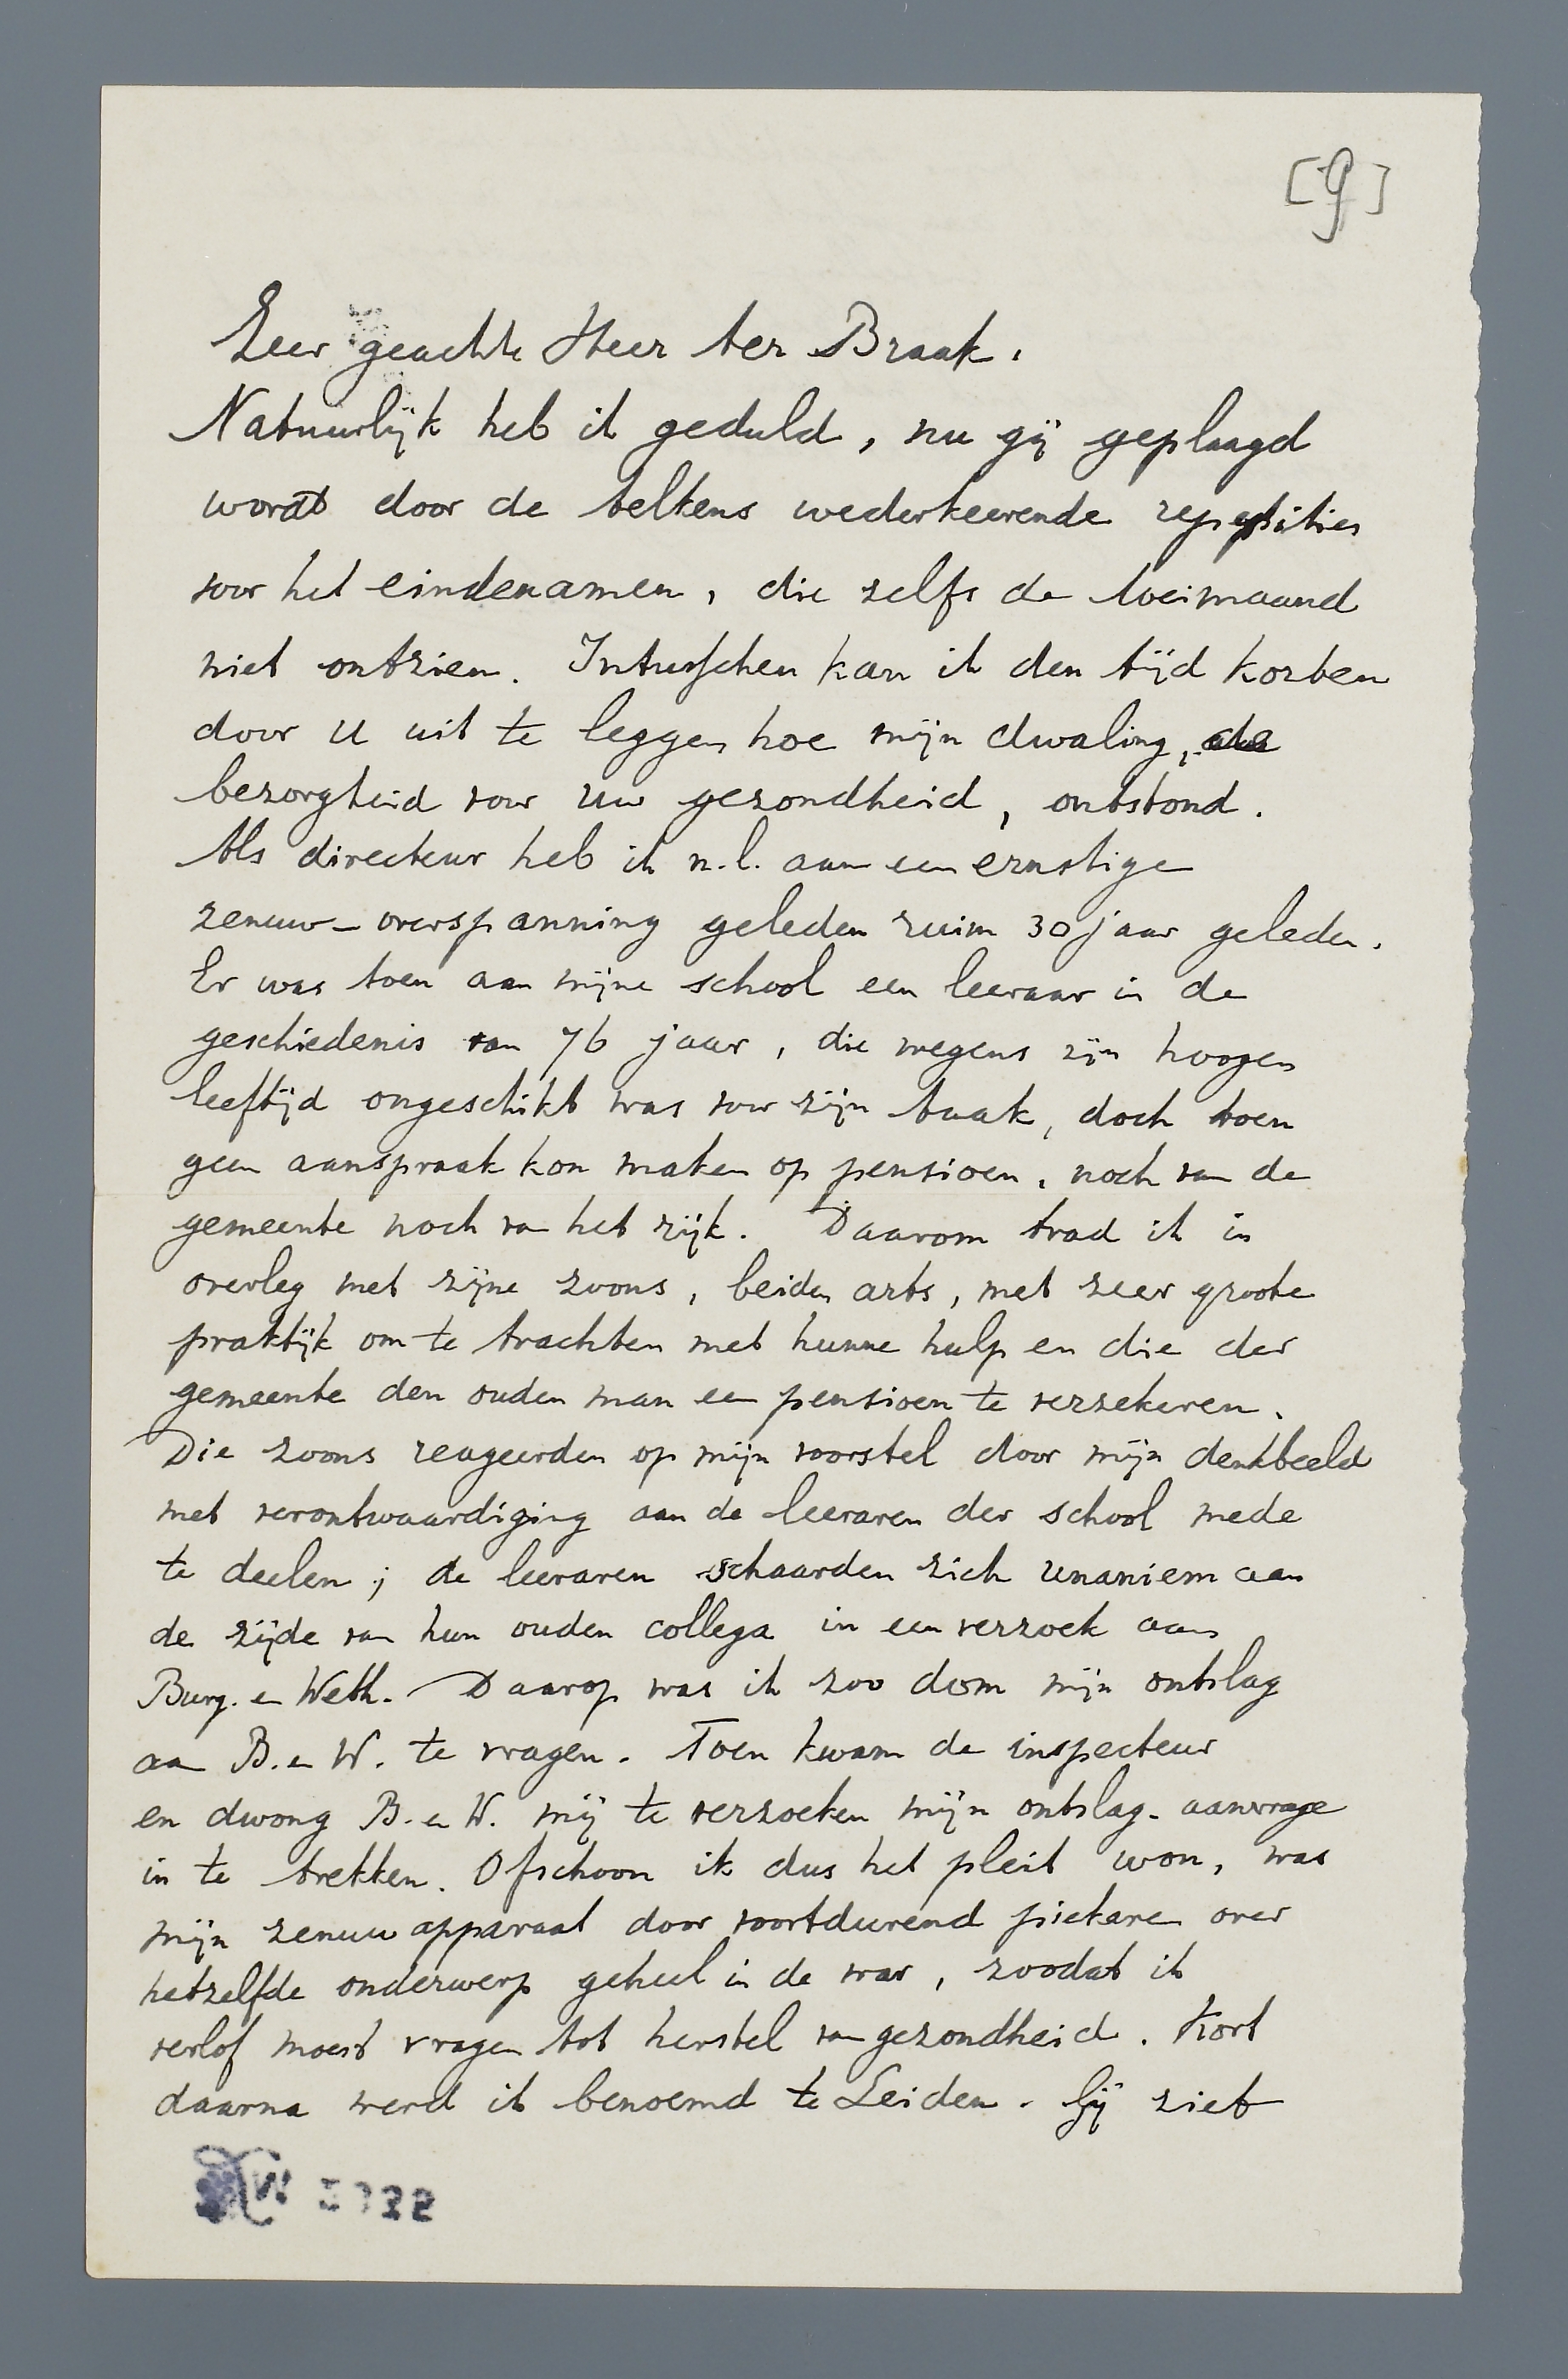 [9]
Zeer geachte Heer ter Braak,
Natuurlijk heb ik geduld, nu gij geplaagd
wordt door de telkens wederkeerende repetities
voor het eindexamen, die zelfs de bloeimaand
niet ontzien. Intusschen kan ik den tijd korten
door U uit te leggen hoe mijn dwaling, de
bezorgheid voor uw gezondheid, ontstond.
Als directeur heb ik n.l. aan een ernstige
zenuw-overspanning geleden ruim 30 jaar geleden.
Er was toen aan mijne school een leeraar in de
geschiedenis van 76 jaar, die wegens zijn hoogen
leeftijd ongeschikt was voor zijn taak, doch toen
geen aanspraak kon maken op pensioen, noch van de
gemeente noch van het rijk. Daarom trad ik in
overleg met zijne zoons, beiden arts, met zeer groote
praktijk om te trachten met hunne hulp en die der
gemeente den ouden man een pensioen te verzekeren.
Die zoons reageerden op mijn voorstel door mijn denkbeeld
met verontwaardiging aan de leeraren der school mede
te deelen; de leeraren schaarden zich unaniem aan
de zijde van hun ouden collega in een verzoek aan
Burg. en Weth. Daarop was ik zoo dom mijn ontslag
aan B. en W. te vragen. Toen kwam de inspecteur
en dwong B. en W. mij te verzoeken mijn ontslag-aanvrage
in te trekken. Ofschoon ik dus het pleit won, was
mijn zenuwapparaat door voortdurend piekeren over
hetzelfde onderwerp geheel in de war, zoodat ik
verlof moest vragen tot herstel van gezondheid. Kort
daarna werd ik benoemd te Leiden. Gij ziet